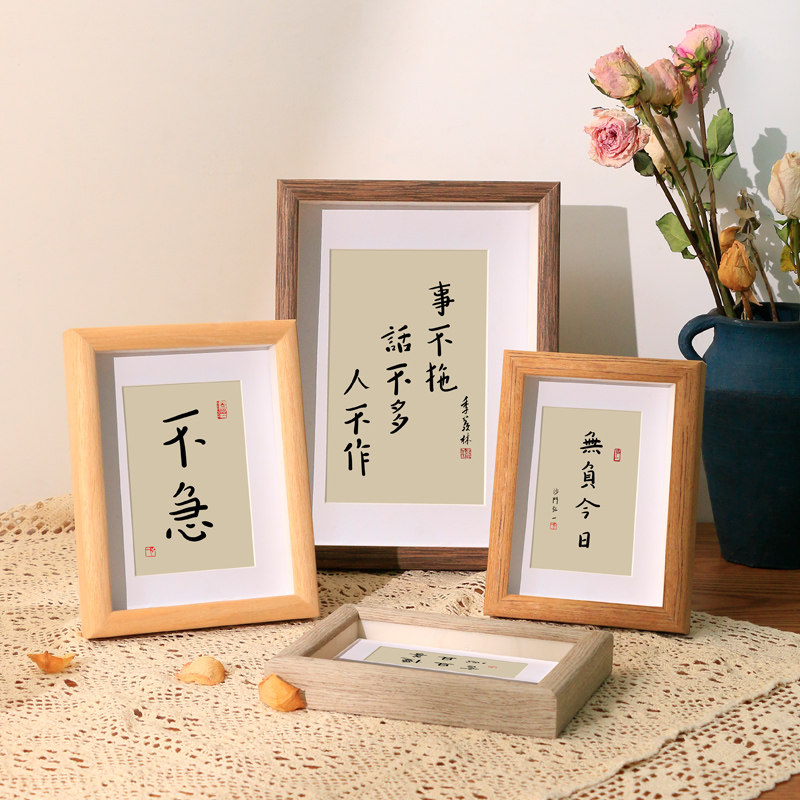 不急
事不拖
話不多
人不作
季羨林
無負今日
沙門弘一